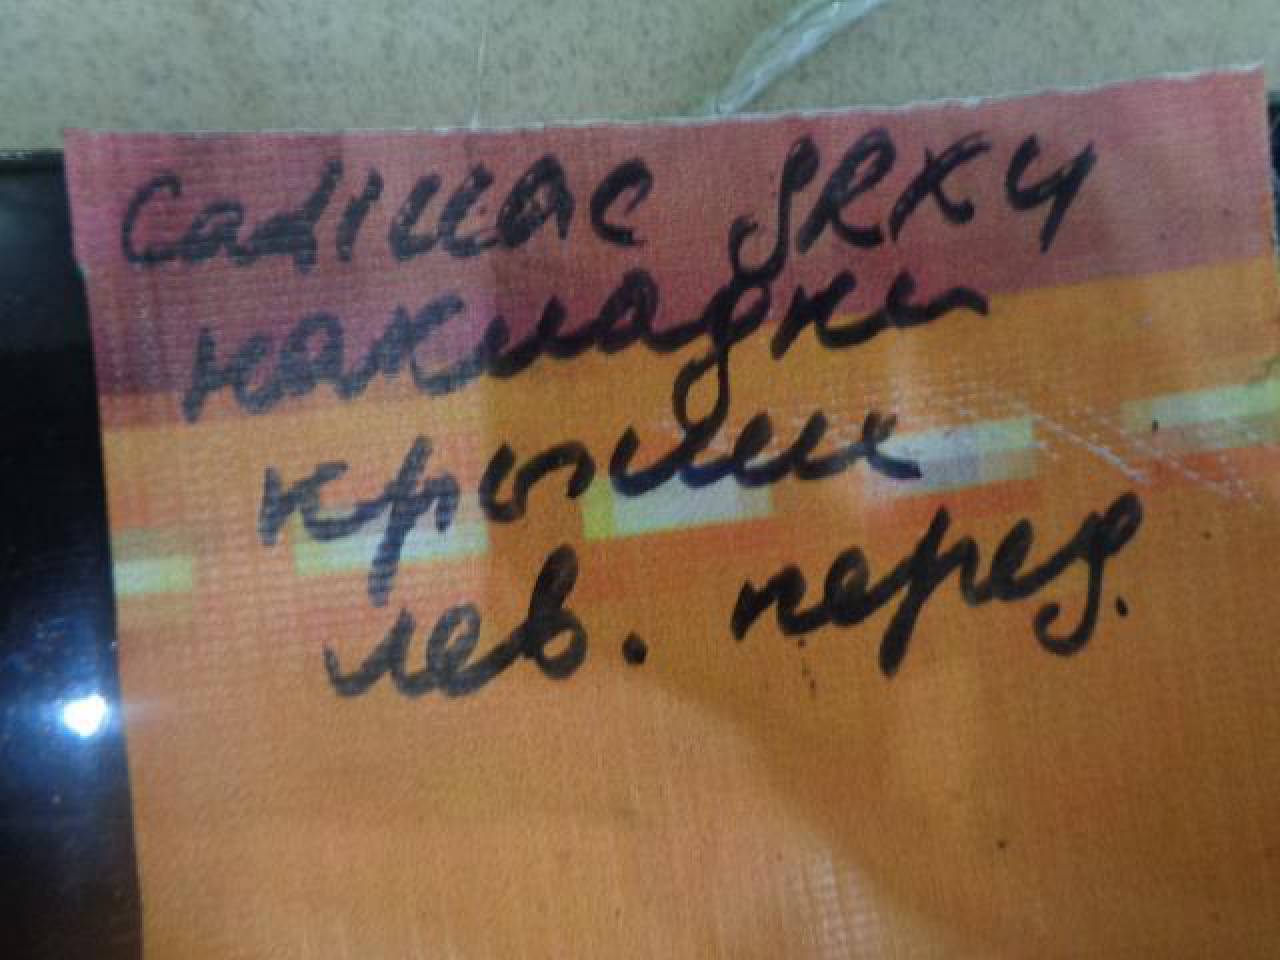 Cadillac SRX4
накладки
крыши
лев. перед.